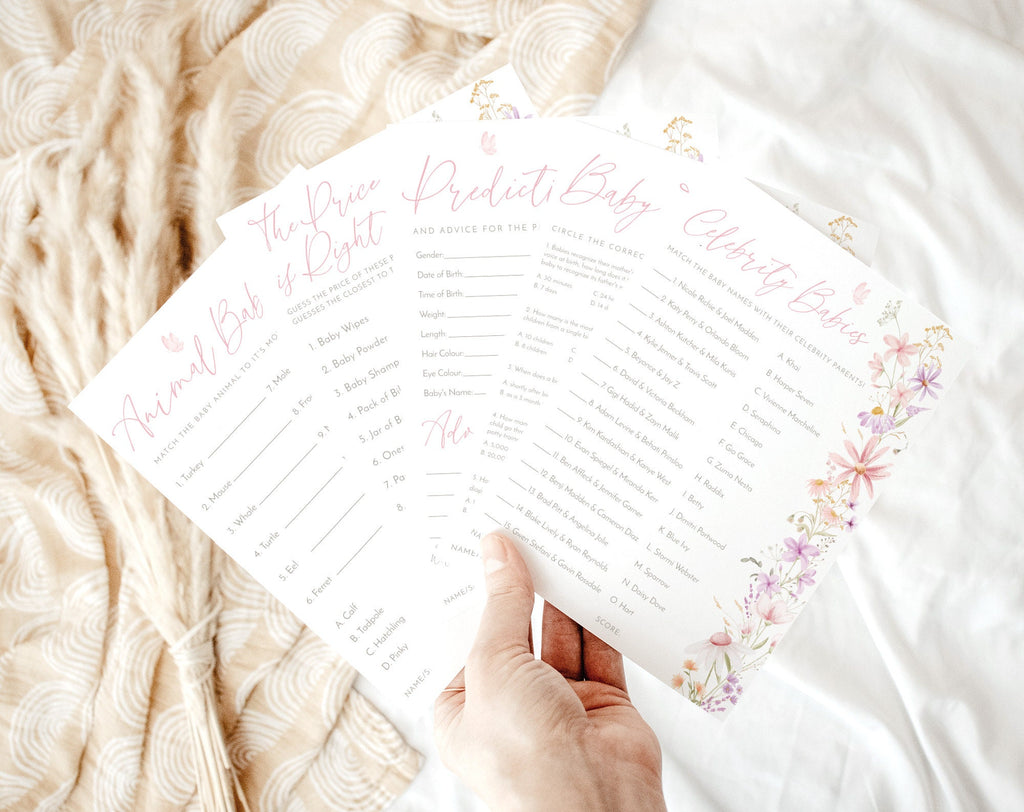 Animal Bab
MATCH THE BABY ANIMAL TO IT'S MO
1. Turkey
2. Mouse
3. Whale
4. Turtle
5. Eel
6. Ferret
7. Mole
8. Fro
9. 
A. Calf
B. Tadpole
C. Hatchling
D. Pinky
NAME/S:
The Price
is Right
GUESS THE PRICE OF THESE
GUESSES THE CLOSEST TO
1. Baby Wipes
2. Baby Powder
3. Baby Shamp
4. Pack of Bi
5. Jar of B
6. Ones
7. Pa
8.
NAME/S:
Predicti
AND ADVICE FOR THE P
Gender:
Date of Birth:
Time of Birth:
Weight:
Length:
Hair Colour:
Eye Colour:
Baby's Name:
Adv
Baby
CIRCLE THE CORREC
1. Babies recognize their mother's
voice at birth; how long does it
baby to recognize its father's
A. 30 minutes
B. 7 days
C. 24
D.
2. How many is the most
children from a single
A. 10 children
B. 8 children
C
D
3. When does a b
A. shortly after
B. as a 3 month
4. How man
child go th
potty train
A. 5,000
B. 20,00
NAME
Celebrity Babies
MATCH THE BABY NAMES WITH THEIR CELEBRITY PARENTS!
1. Nicole Richie & Joel Madden
2. Katy Perry & Orlando Bloom
3. Ashton Kutcher & Mila Kunis
4. Kylie Jenner & Travis Scott
5. Beyonce & Jay Z
6. David & Victoria Beckham
7. Gigi Hadid & Zayn Malik
8. Adam Levine & Behati Prinsloo
9. Kim Kardashian & Kanye West
10. Evan Spiegel & Miranda Kerr
11. Ben Affleck & Jennifer Garner
12. Benji Madden & Cameron Diaz
13. Brad Pitt & Angelina Jolie
14. Blake Lively & Ryan Reynolds
15. Gwen Stefani & Gavin Rossdale
A. Khai
B. Harper Seven
C. Vivienne Marcheline
D. Seraphina
E. Chicago
F. Gio Grace
G. Zuma Nesta
H. Raddix
I. Betty
J. Dimitri Portwood
K. Blue Ivy
L. Stormi Webster
M. Sparrow
N. Daisy Dove
O. Hart
SCORE: